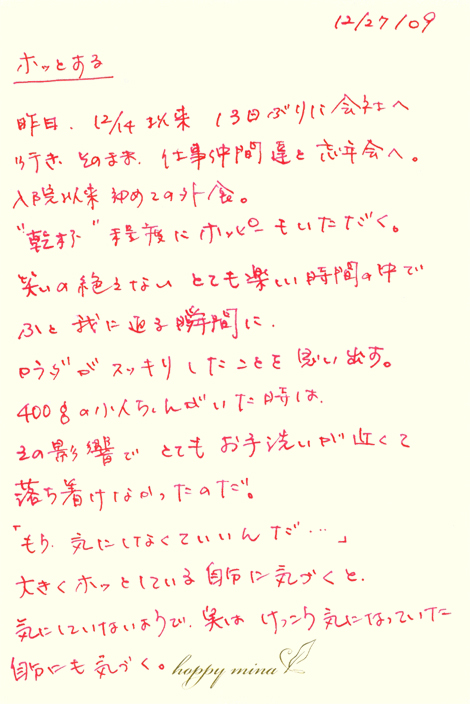 12/27/09
ホッとする
昨日、12/14以来 13日ぶりに会社へ
行き、そのまま、仕事仲間達と忘年会へ。
入院以来初めての外食。
"乾杯"程度にホッピーもいただく。
笑いの絶えない とても楽しい時間の中で
ふと我に返る瞬間に、
カラダがスッキリしたことを思い出す。
400gの小人ちゃんがいた時は、
その影響でとてもお手洗いが近くて
落ち着けなかったのだ。
「もう、気にしなくていいんだ…」
大きくホッとしている自分に気づくと、
気にしていないようで、実は けっこう気になっていた
自分にも気づく。 hoppy mina